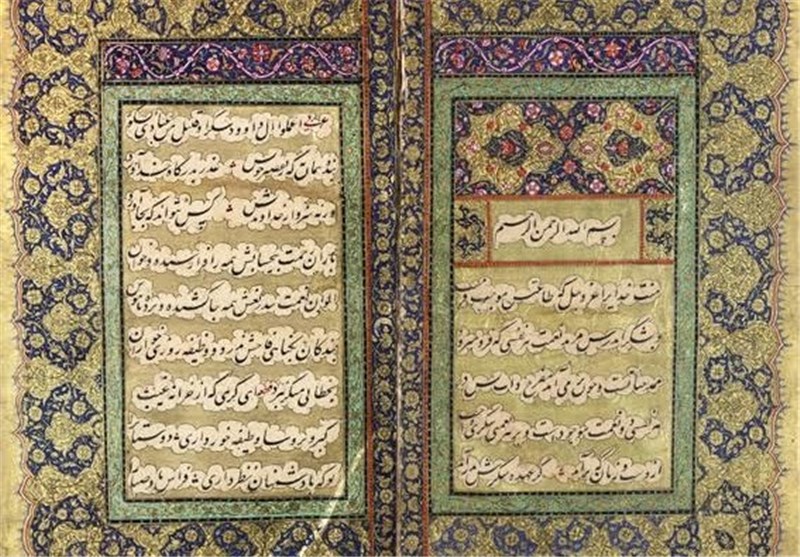 بسم الله الرحمن الرحیم
منت خدایرا عز و جل که طاعتش موجب قربت
و بشکر اندرش مزید نعمت هر نفسی که فرو میرود
ممد حیاتست و چون بر می آید مفرح ذات پس در
هر نفسی دو نعمت موجودست و بر هر نعمتی شکری واجب
از دست و زبان که برآید کز عهده شکرش بدر آید
اعملوا آل داود شکرا و قلیل من عبادی الشکور
بنده همان به که ز تقصیر خویش عذر بدرگاه خدا آورد
ورنه سزاوار خداوندیش کس نتواند که بجا آورد
باران رحمت بیحسابش همه را فرا رسیده و خوان
الوان نعمت بیدریغش همه جا کشیده و پرده ناموس
بندگان بگناه فاحش ندرد و وظیفه روزی خواران
بخطای منکر نبرد قطعه ای کریمی که از خزانه غیب
گبر و ترسا وظیفه خور داری دوستان
تو که با دشمنان نظر داری فراش باد صبا